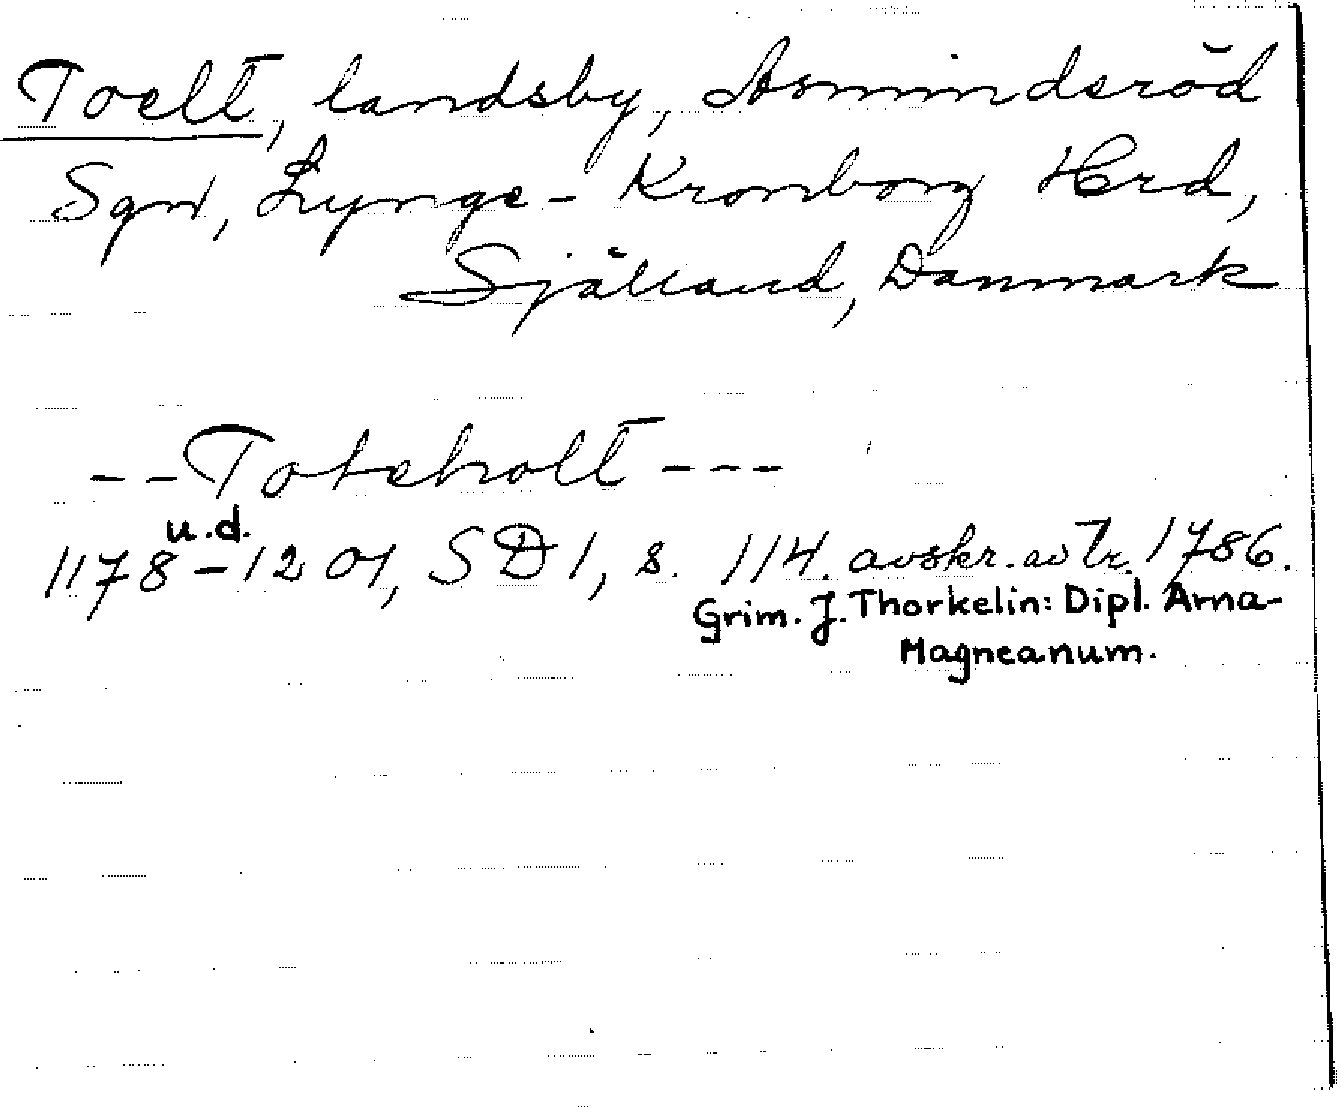 Toelt, landsby, Asminderöd
Sgn, Lynge-Kronborg Hrd,
Själland, Danmark
--Toteholt---
u.d.
1178-1201, SD1, s. 114. avskr. av tr. 1786.
Grim. J. Thorkelin: Dipl. Arna-
Magneanum.